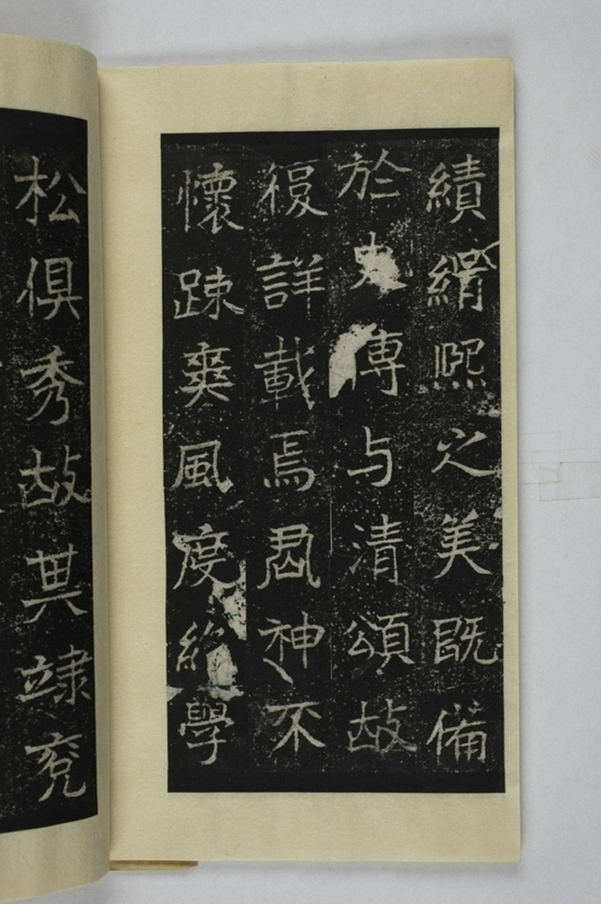 績緝熙之美既備
於史傳与清頌故
復詳載焉君神不
懷踈爽風度學
松俱秀故其隸兖